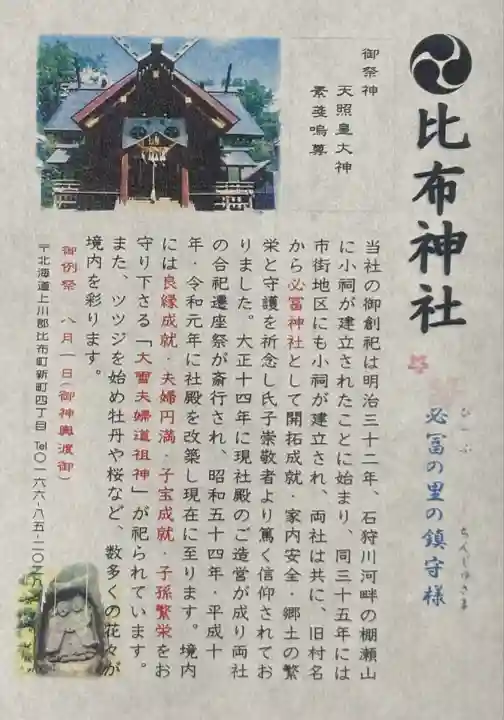 比布神社
必冨の里の鎮守様
ひっぷ
ちんじゅさま
御祭神
天照皇大神
素戔嗚尊
当社の御創祀は明治三十二年、石狩川河畔の棚瀬山
に小祠が建立されたことに始まり、同三十五年には
市街地区にも小祠が建立され、両社は共に、旧村名
から必冨神社として開拓成就・家内安全・郷土の繁
栄と守護を祈念し氏子崇敬者より篤く信仰されてお
りました。大正十四年に現社殿のご造営が成り両社
の合祀遷座祭が斎行され、昭和五十四年・平成十
年・令和元年に社殿を改築し現在に至ります。境内
には良縁成就・夫婦円満・子宝成就・子孫繁栄をお
守り下さる「大雪夫婦道祖神」が祀られています。
また、ツツジを始め牡丹や桜など、数多くの花々が
境内を彩ります。
御例祭 八月一日(御神輿渡御)
〒北海道上川郡比布町新町四丁目 Tel〇一六六-八五-二〇